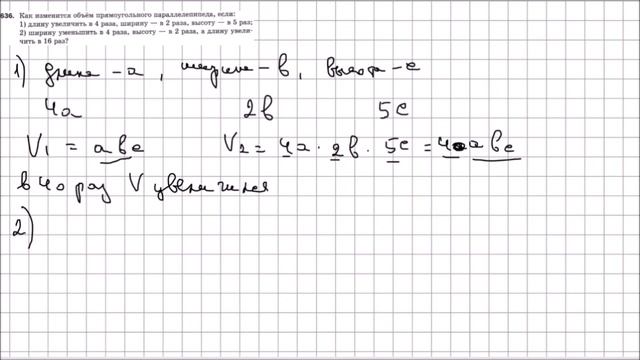 636. Как изменится объём прямоугольного параллелепипеда, если:
1) длину увеличить в 4 раза, ширину — в 2 раза, высоту — в 5 раз;
2) ширину уменьшить в 4 раза, высоту — в 2 раза, а длину увели-
чить в 16 раз?
1) длина - а, ширина - в, высота - с
4а 2в 5с
V₁ = авс V₂ = 4а · 2в · 5с = 40авс
в 40 раз V увеличился
2)